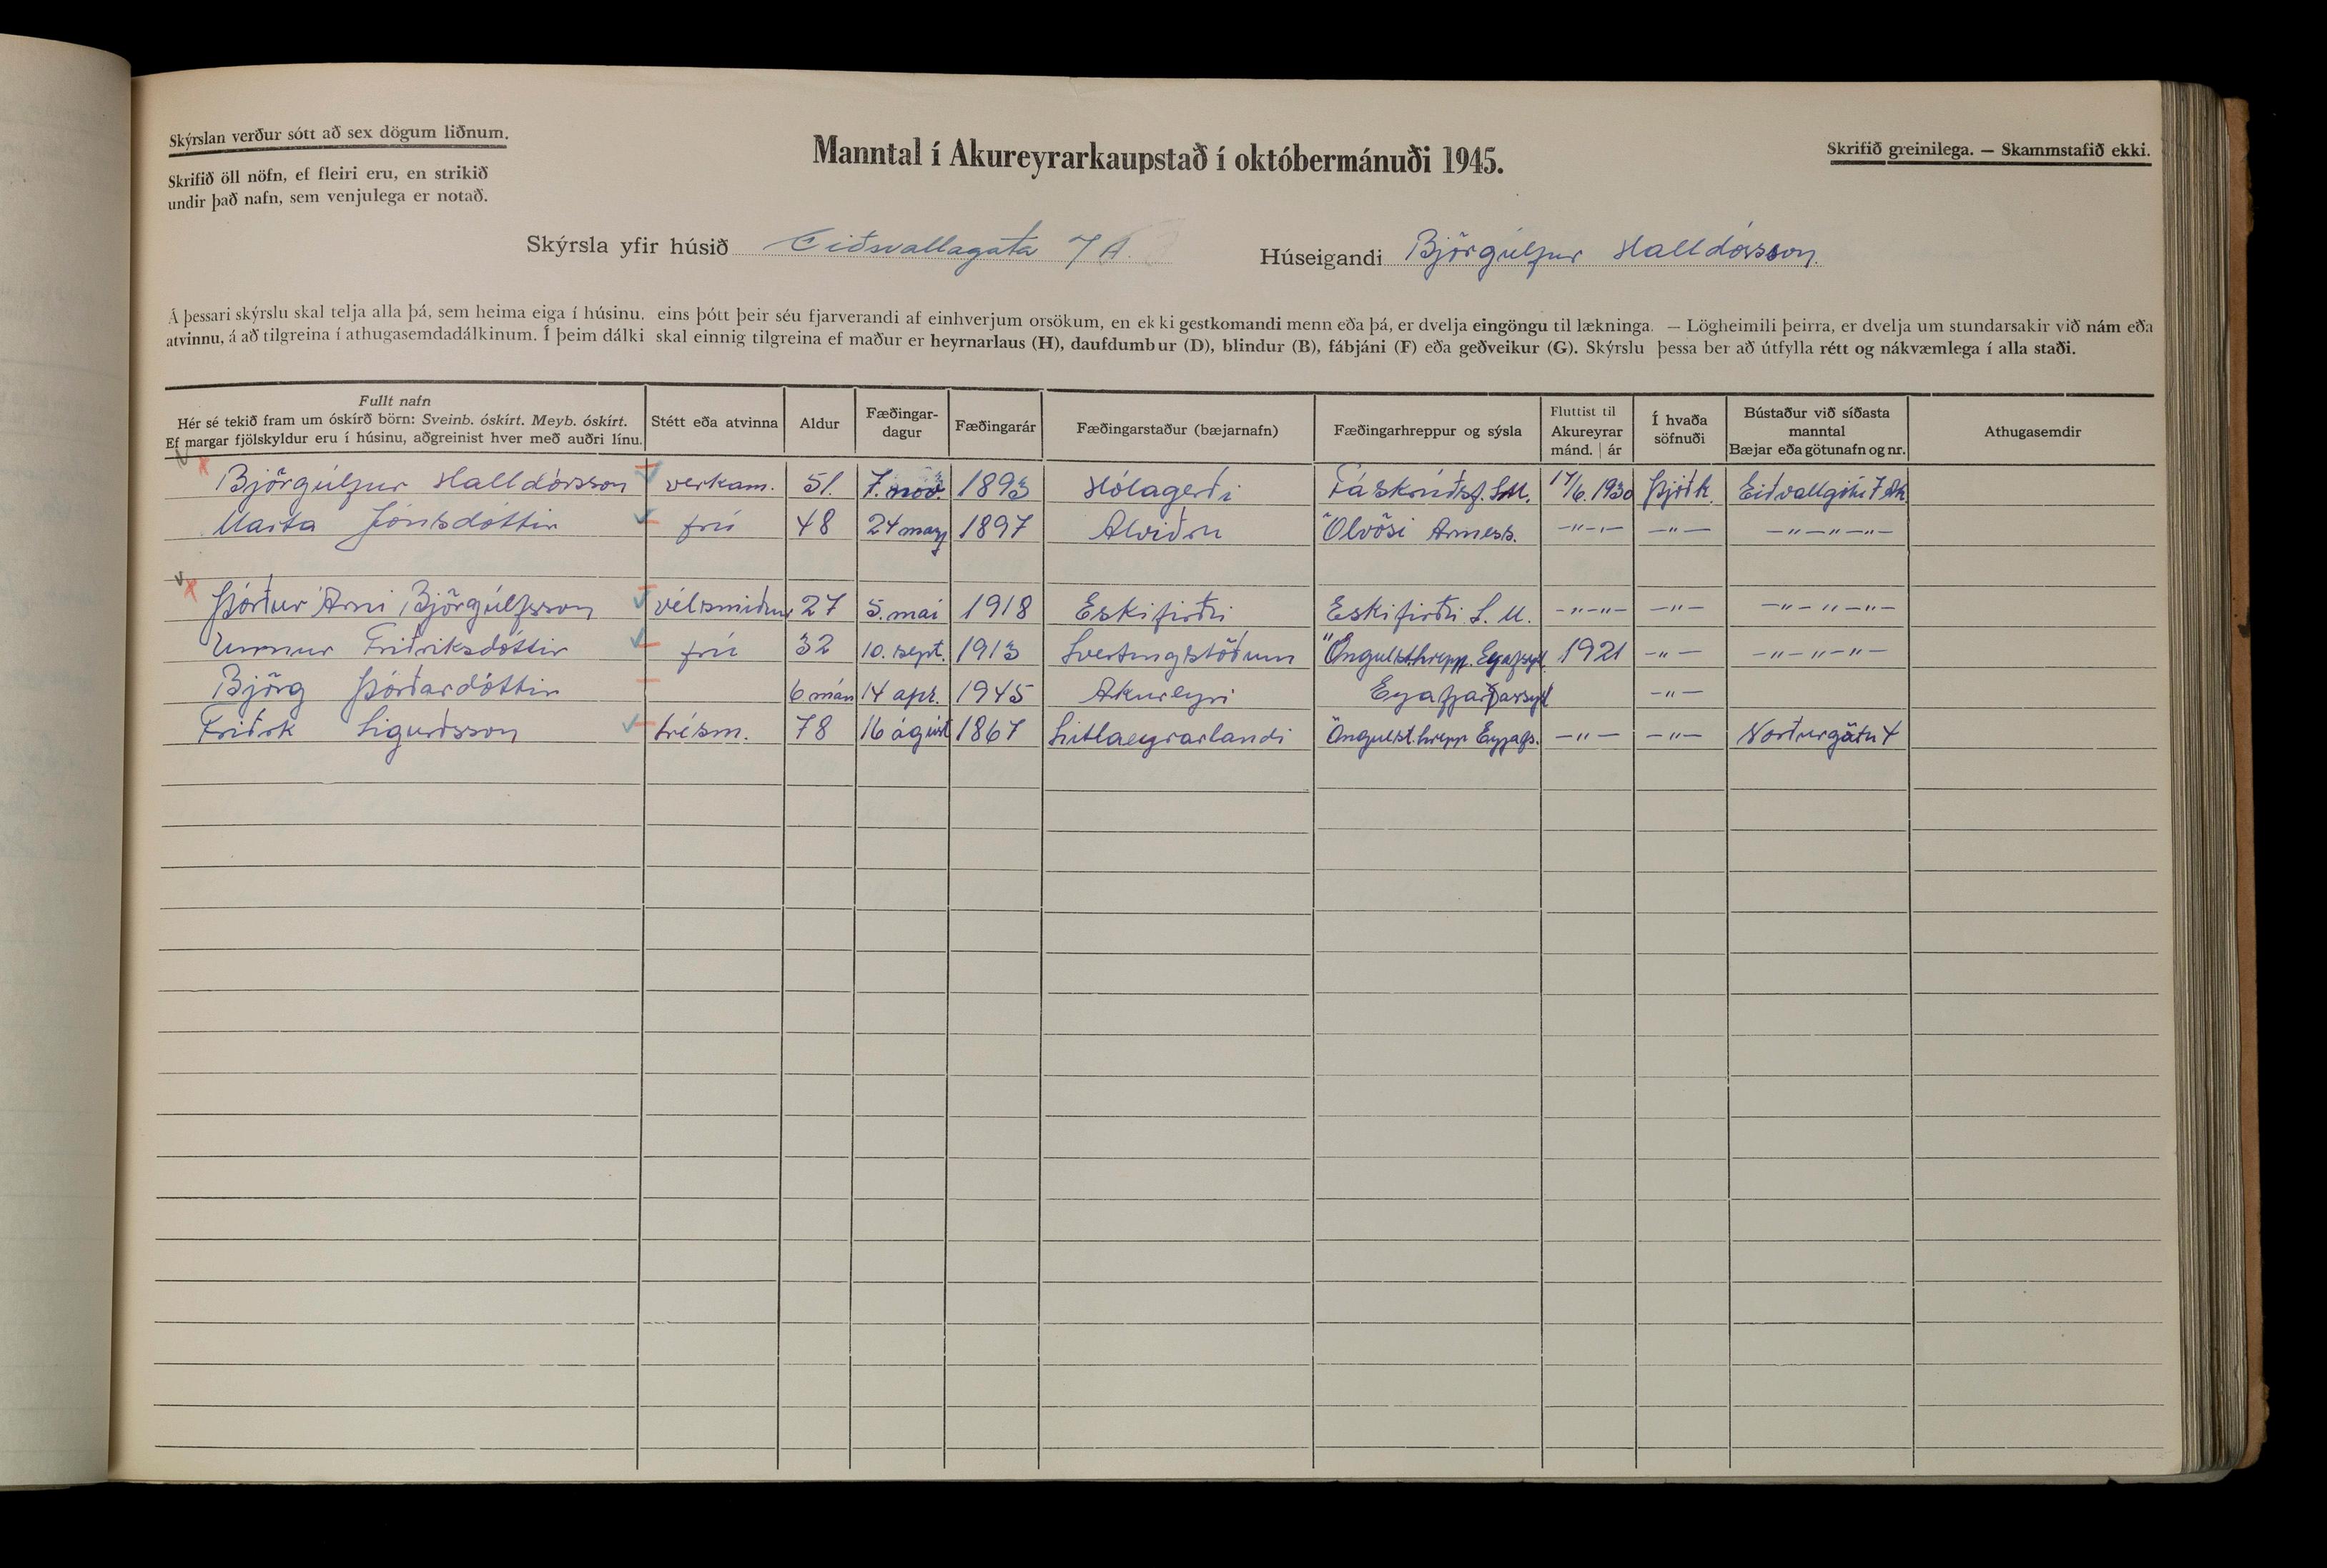 Skýrslan verður sótt að sex dögum liðnum.
Skrifið öll nöfn, ef fleiri eru, en strikið
undir það nafn, sem venjulega er notað.
Manntal í Akureyrarkaupstað í októbermánuði 1945.
Skrifið greinilega. — Skammstafið ekki.
Skýrsla yfir húsið Eiðsvallagata 7 A.
Húseigandi Björgúlfur Halldórsson.
Á þessari skýrslu skal telja alla þá, sem heima eiga í húsinu, eins þótt þeir séu fjarverandi af einhverjum orsökum, en ekki gestkomandi menn eða þá, er dvelja eingöngu til lækninga. — Lögheimili þeirra, er dvelja um stundarsakir við nám eða
atvinnu, á að tilgreina í athugasemdadálkinum. Í þeim dálki skal einnig tilgreina ef maður er heyrnarlaus (H), daufdumbur (D), blindur (B), fábjáni (F) eða geðveikur (G). Skýrslu þessa ber að útfylla rétt og nákvæmlega í alla staði.
Fullt nafn
Hér sé tekið fram um óskírð börn: Sveinb. óskírt. Meyb. óskírt.
Ef margar fjölskyldur eru í húsinu, aðgreinist hver með auðri línu.
Stétt eða atvinna
Aldur
Fæðingar-
dagur
Fæðingarár
Fæðingarstaður (bæjarnafn)
Fæðingarhreppur og sýsla
Fluttist til
Akureyrar
mánd. | ár
Í hvaða
söfnuði
Bústaður við síðasta
manntal
Bæjar eða götunafn og nr.
Athugasemdir
Björgúlfur Halldórsson verkam. 51. 7. nóv. 1893 Hólagerði Fáskrúðsf. S.M. 17/6. 1930 Þjóðk. Eiðvallgötu 7 Ak.
Marta Jónsdóttir frú 48 24 marz 1897 Alviðru Ölvösi Árness. —"—"— —"— —"—"—"—
Þórður Árni Björgúlfsson vélsmiður 27 5. mai 1918 Eskifirði Eskifirði S. M. —"—"— —"— —"—"—"—
Unnur Friðriksdóttir frú 32 10. sept. 1913 Svertingstöðum Öngulst.hrepp. Eyafsýsl 1921 —"— —"—"—"—
Björg Þórðardóttir 6 mán 14 apr. 1945 Akureyri Eyafjarðarsýsl —"—
Friðrk Sigurðsson trésm. 78 16 ágúst 1867 Litlaeyrarlandi Öngulst.hrepp Eyjafs. —"— —"— Norðurgötu 4